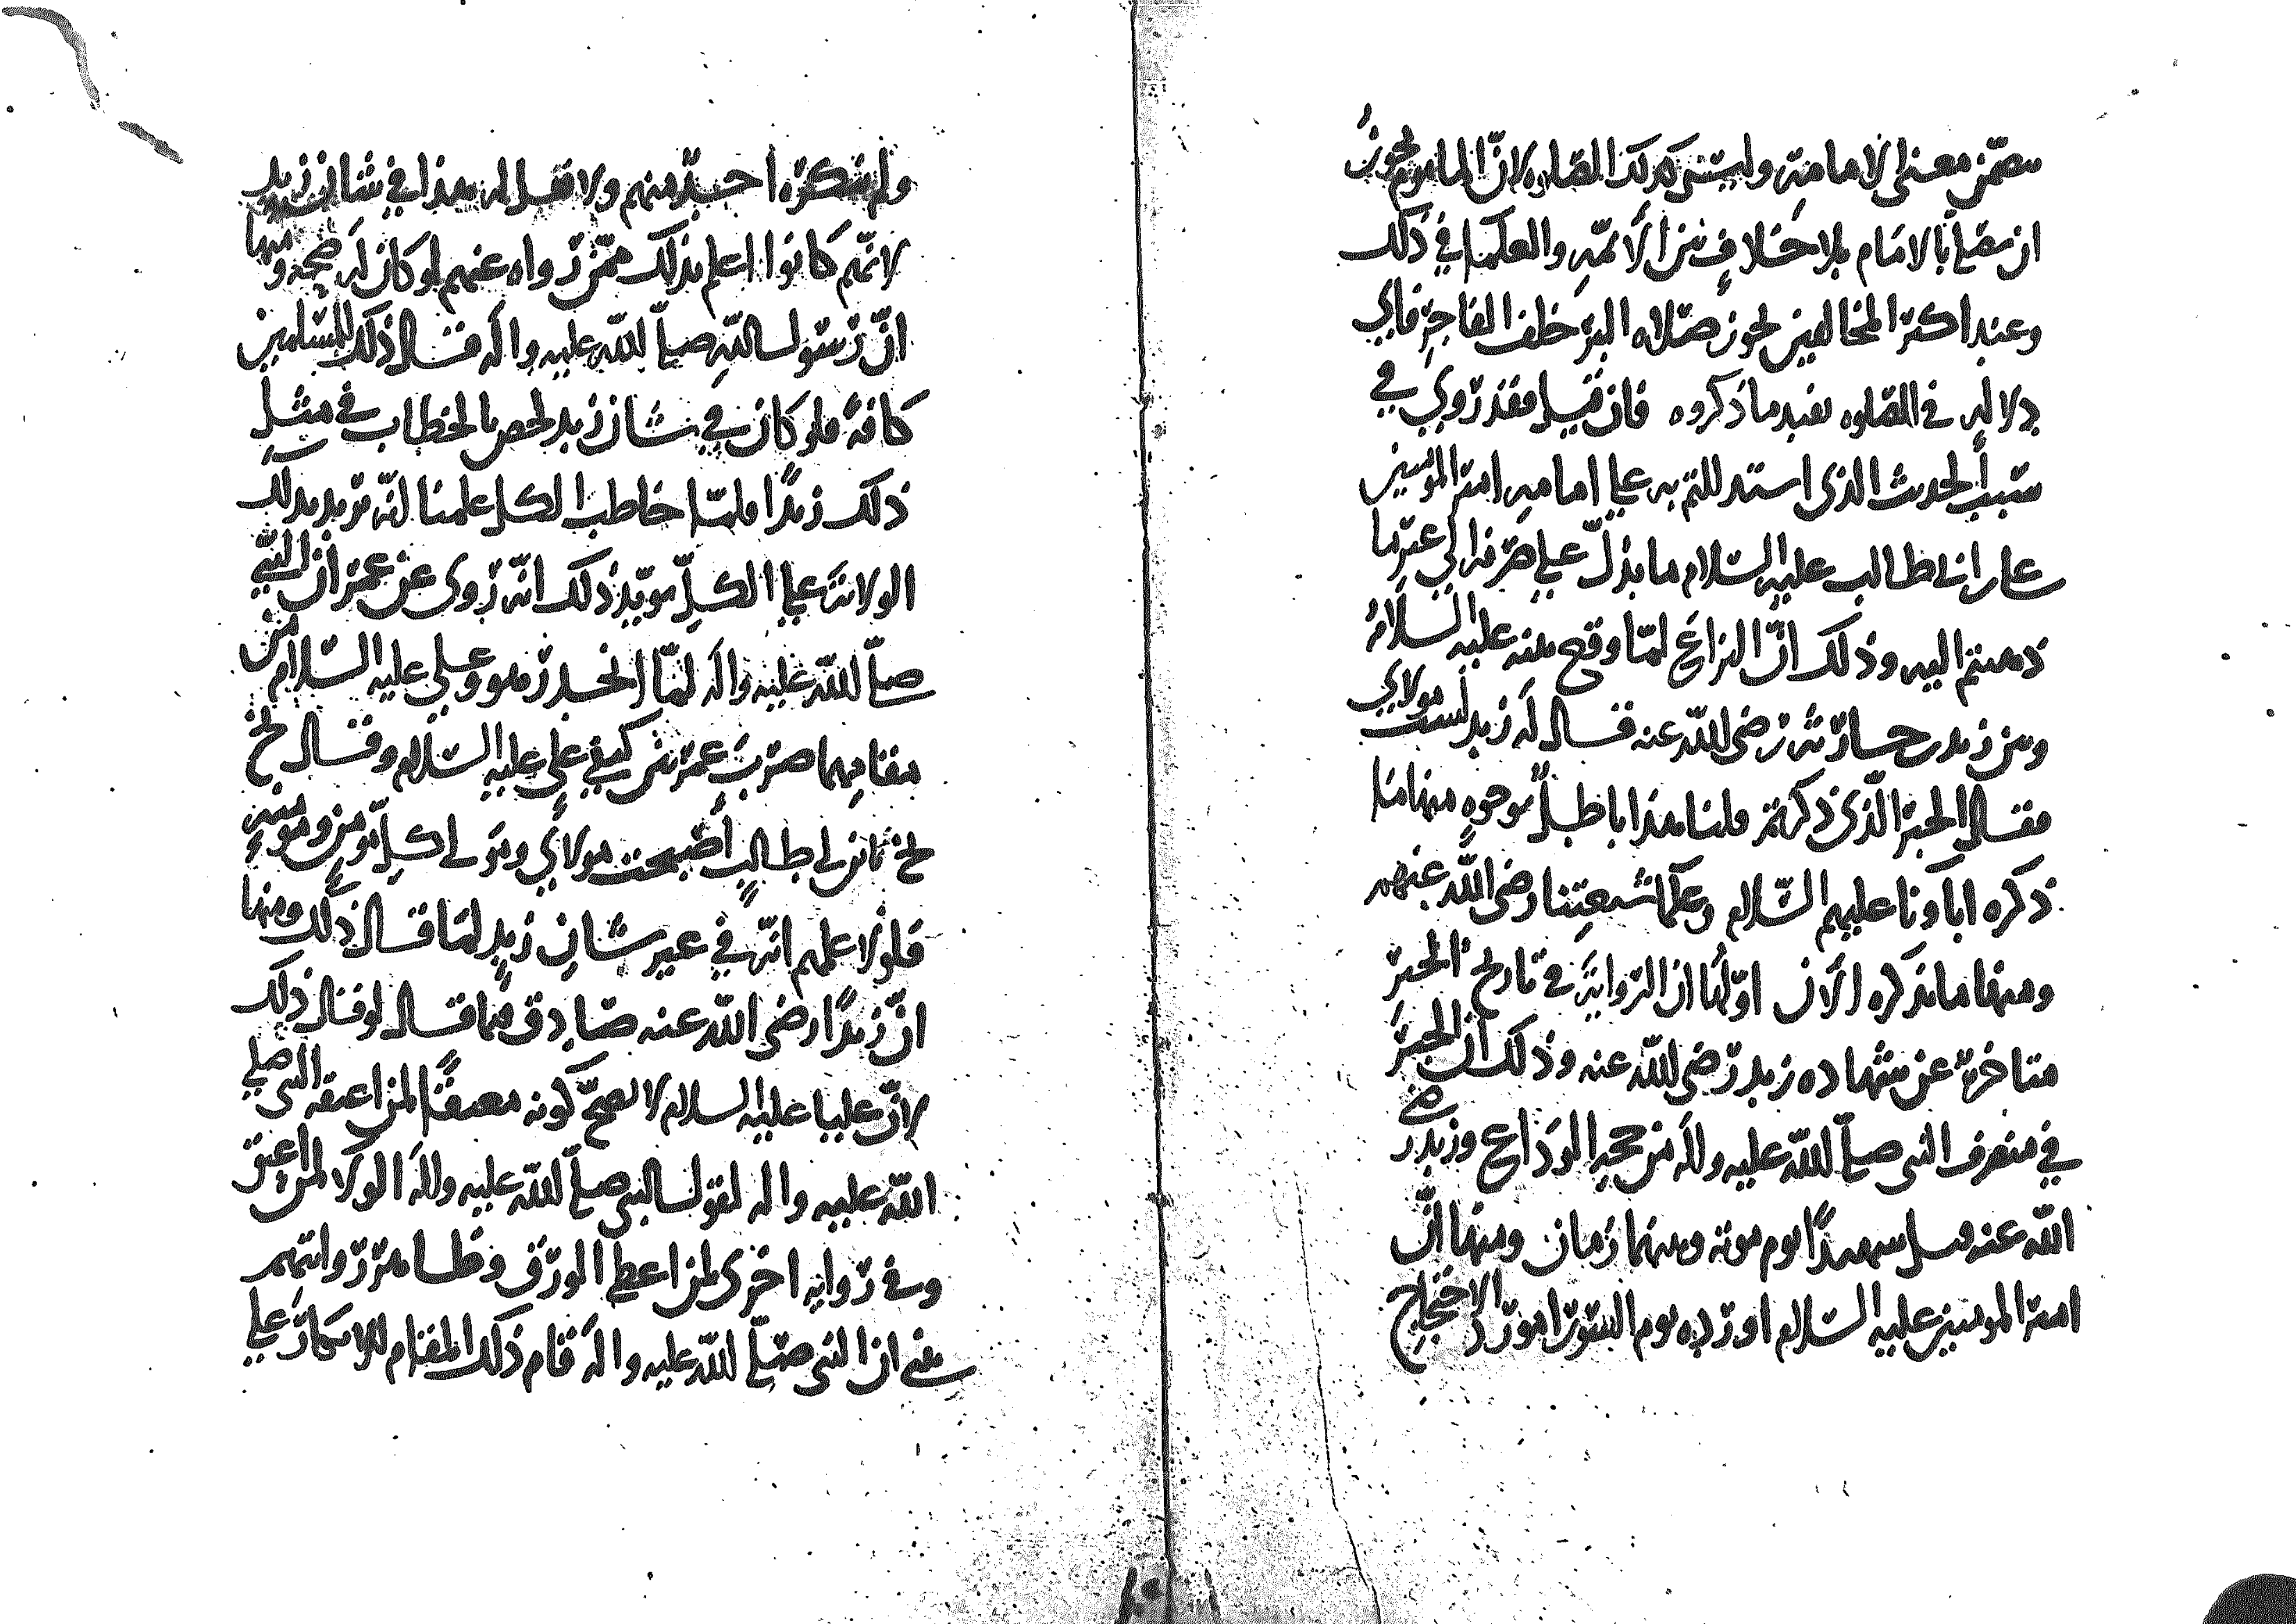 يتضمن معنى الامامة وليس كذلك الصلوه لان الماموم يجوز
ان يصلي بالامام بلا خلاف بين الأئمه والعلما في ذلك
وعند اكثر المخالفين يجوز صلاه البر خلف الفاجر فاي
دلاله في الصلوه بعد ما ذكروه فان قيل فقد روي في
سبب الحديث الذي استدللتم به علي امامه امير المومنين
علي بن ابي طالب عليه السلام ما يدل علي صرفه الي غير ما
ذهبتم اليه وذلك انّ النزاع لمّا وقع بينه عليه السلام
وبين زيد بن حارثه رضي الله عنه قال له زيد لست مولاي
فقال الخبر الذي ذكرتم قلنا هذا باطل بوجوه منها ما
ذكره اباونا عليهم السّلام وعلما شيعتنا رضي الله عنهم
ومنها ما نذكره الآن اوّلها ان الرواية في تاريخ الخبر
متاخرة عن شهاده زيد رضي الله عنه وذلك ان الخبر
في منصرف النبي صلّى الله عليه وآله من حجه الوداع وزيد رضي
الله عنه قتل شهيدًا يوم موته وبينهما زمان ومنها انّ
امير المومنين عليه السلام اورده يوم الشورى مورد الاحتجاج
ولم ينكره احد منهم ولا قيل له هذا في شان زيد
لانهم كانوا اعلم بذلك ممّن رواه عنهم لو كان له صحه ومنها
انّ رسول الله صلى الله عليه وآله قال ذلك للمسلمين
كافّة فلو كان في شان زيد لخص بالخطاب في مثل
ذلك زيدًا فلمّا خاطب الكل علمنا انّه يريد بذلك
الولاية على الكلّ يؤيد ذلك انّه روى عن عمر ان النبي
صلّى الله عليه وآله لمّا انحدر هو وعلي عليه السّلام من
مقامهما ضرب عمر بين كتفي علي عليه السلام وقال بخ
بخ يا بن ابي طالب أصبحت مولاي ومولى كل مؤمن ومؤمنه
فلولا علمهم انّه في غير شان زيد لما قال ذلك ومنها
انّ زيدًا رضي الله عنه صادق فيما قال لو قال ذلك
لانّ عليا عليه السلام لا يصحّ كونه معتقًا لمن اعتقه النبي صلى
الله عليه واله لقول النبي صلّى الله عليه وآله الولا لمن اعتق
وفي روايه اخرى لمن اعطى الورق وظاهر روايتهم
يعني ان النبي صلّى الله عليه وآله قام ذلك المقام للانكار علي